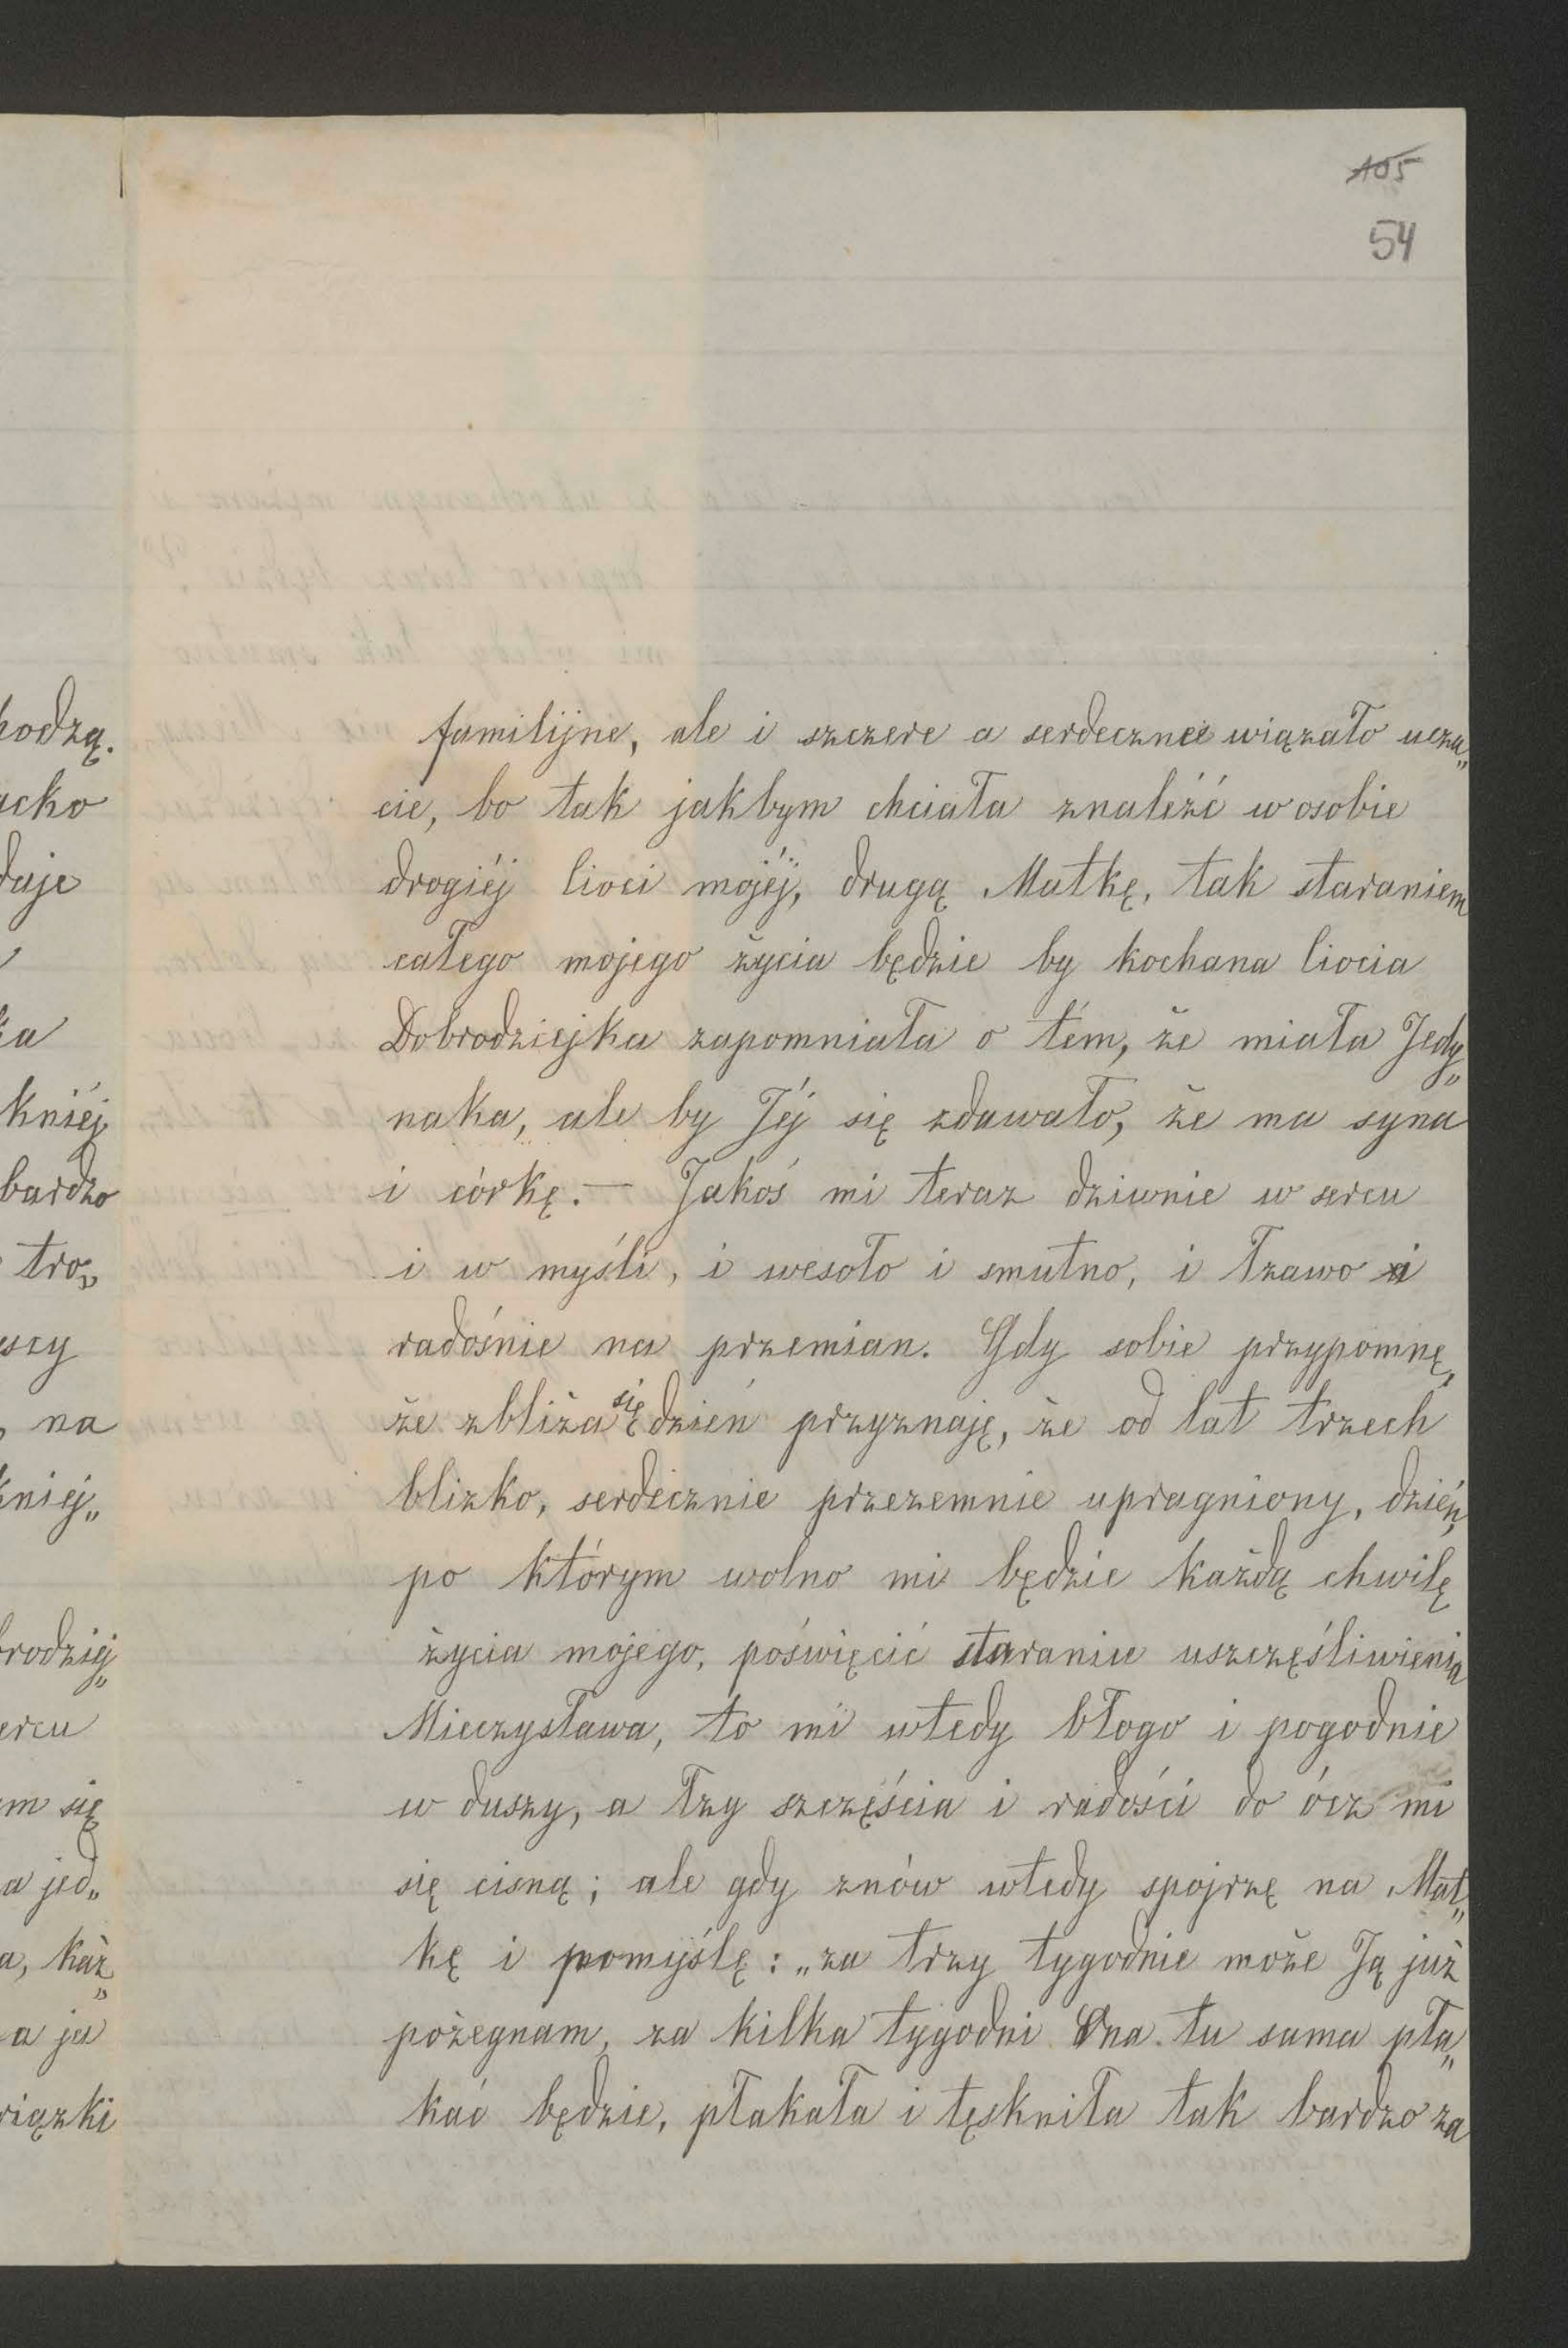 105
54
hodzą.
acko
daje
kniéj
bardzo
tro„
uszy
na
kniej„
brodziej„
ercu
em się
a jed„
a, każ„
a ja
wiązki
familijne, ale i szczere a serdeczne wiązało uczu„
cie, bo tak jakbym chciała znaléźć w osobie
drogiéj Cioci mojéj, drugą Matkę, tak staraniem
całego mojego życia będzie by kochana Ciocia
Dobrodziejka zapomniała o tém, że miała Jedy„
naka, ale by Jéj się zdawało, że ma syna
i córkę. — Jakoś mi teraz dziwnie w sercu
i w myśli, i wesoło i smutno, i łzawo i
radośnie na przemian. Gdy sobie przypomnę,
że zbliża się dzień przyznaję, że od lat trzech
blizko, serdecznie przezemnie upragniony, dzień,
po którym wolno mi będzie każdą chwilę
życia mojego, poświęcić staraniu uszczęśliwienia
Mieczysława, to mi wtedy błogo i pogodnie
w duszy, a łzy szczęścia i radości do ócz mi
się cisną; ale gdy znów wtedy spojrzę na Mat„
kę i pomyślę: „za trzy tygodnie może Ją już
pożegnam, za kilka tygodni Ona tu sama pła„
kać będzie, płakała i tęskniła tak bardzo za